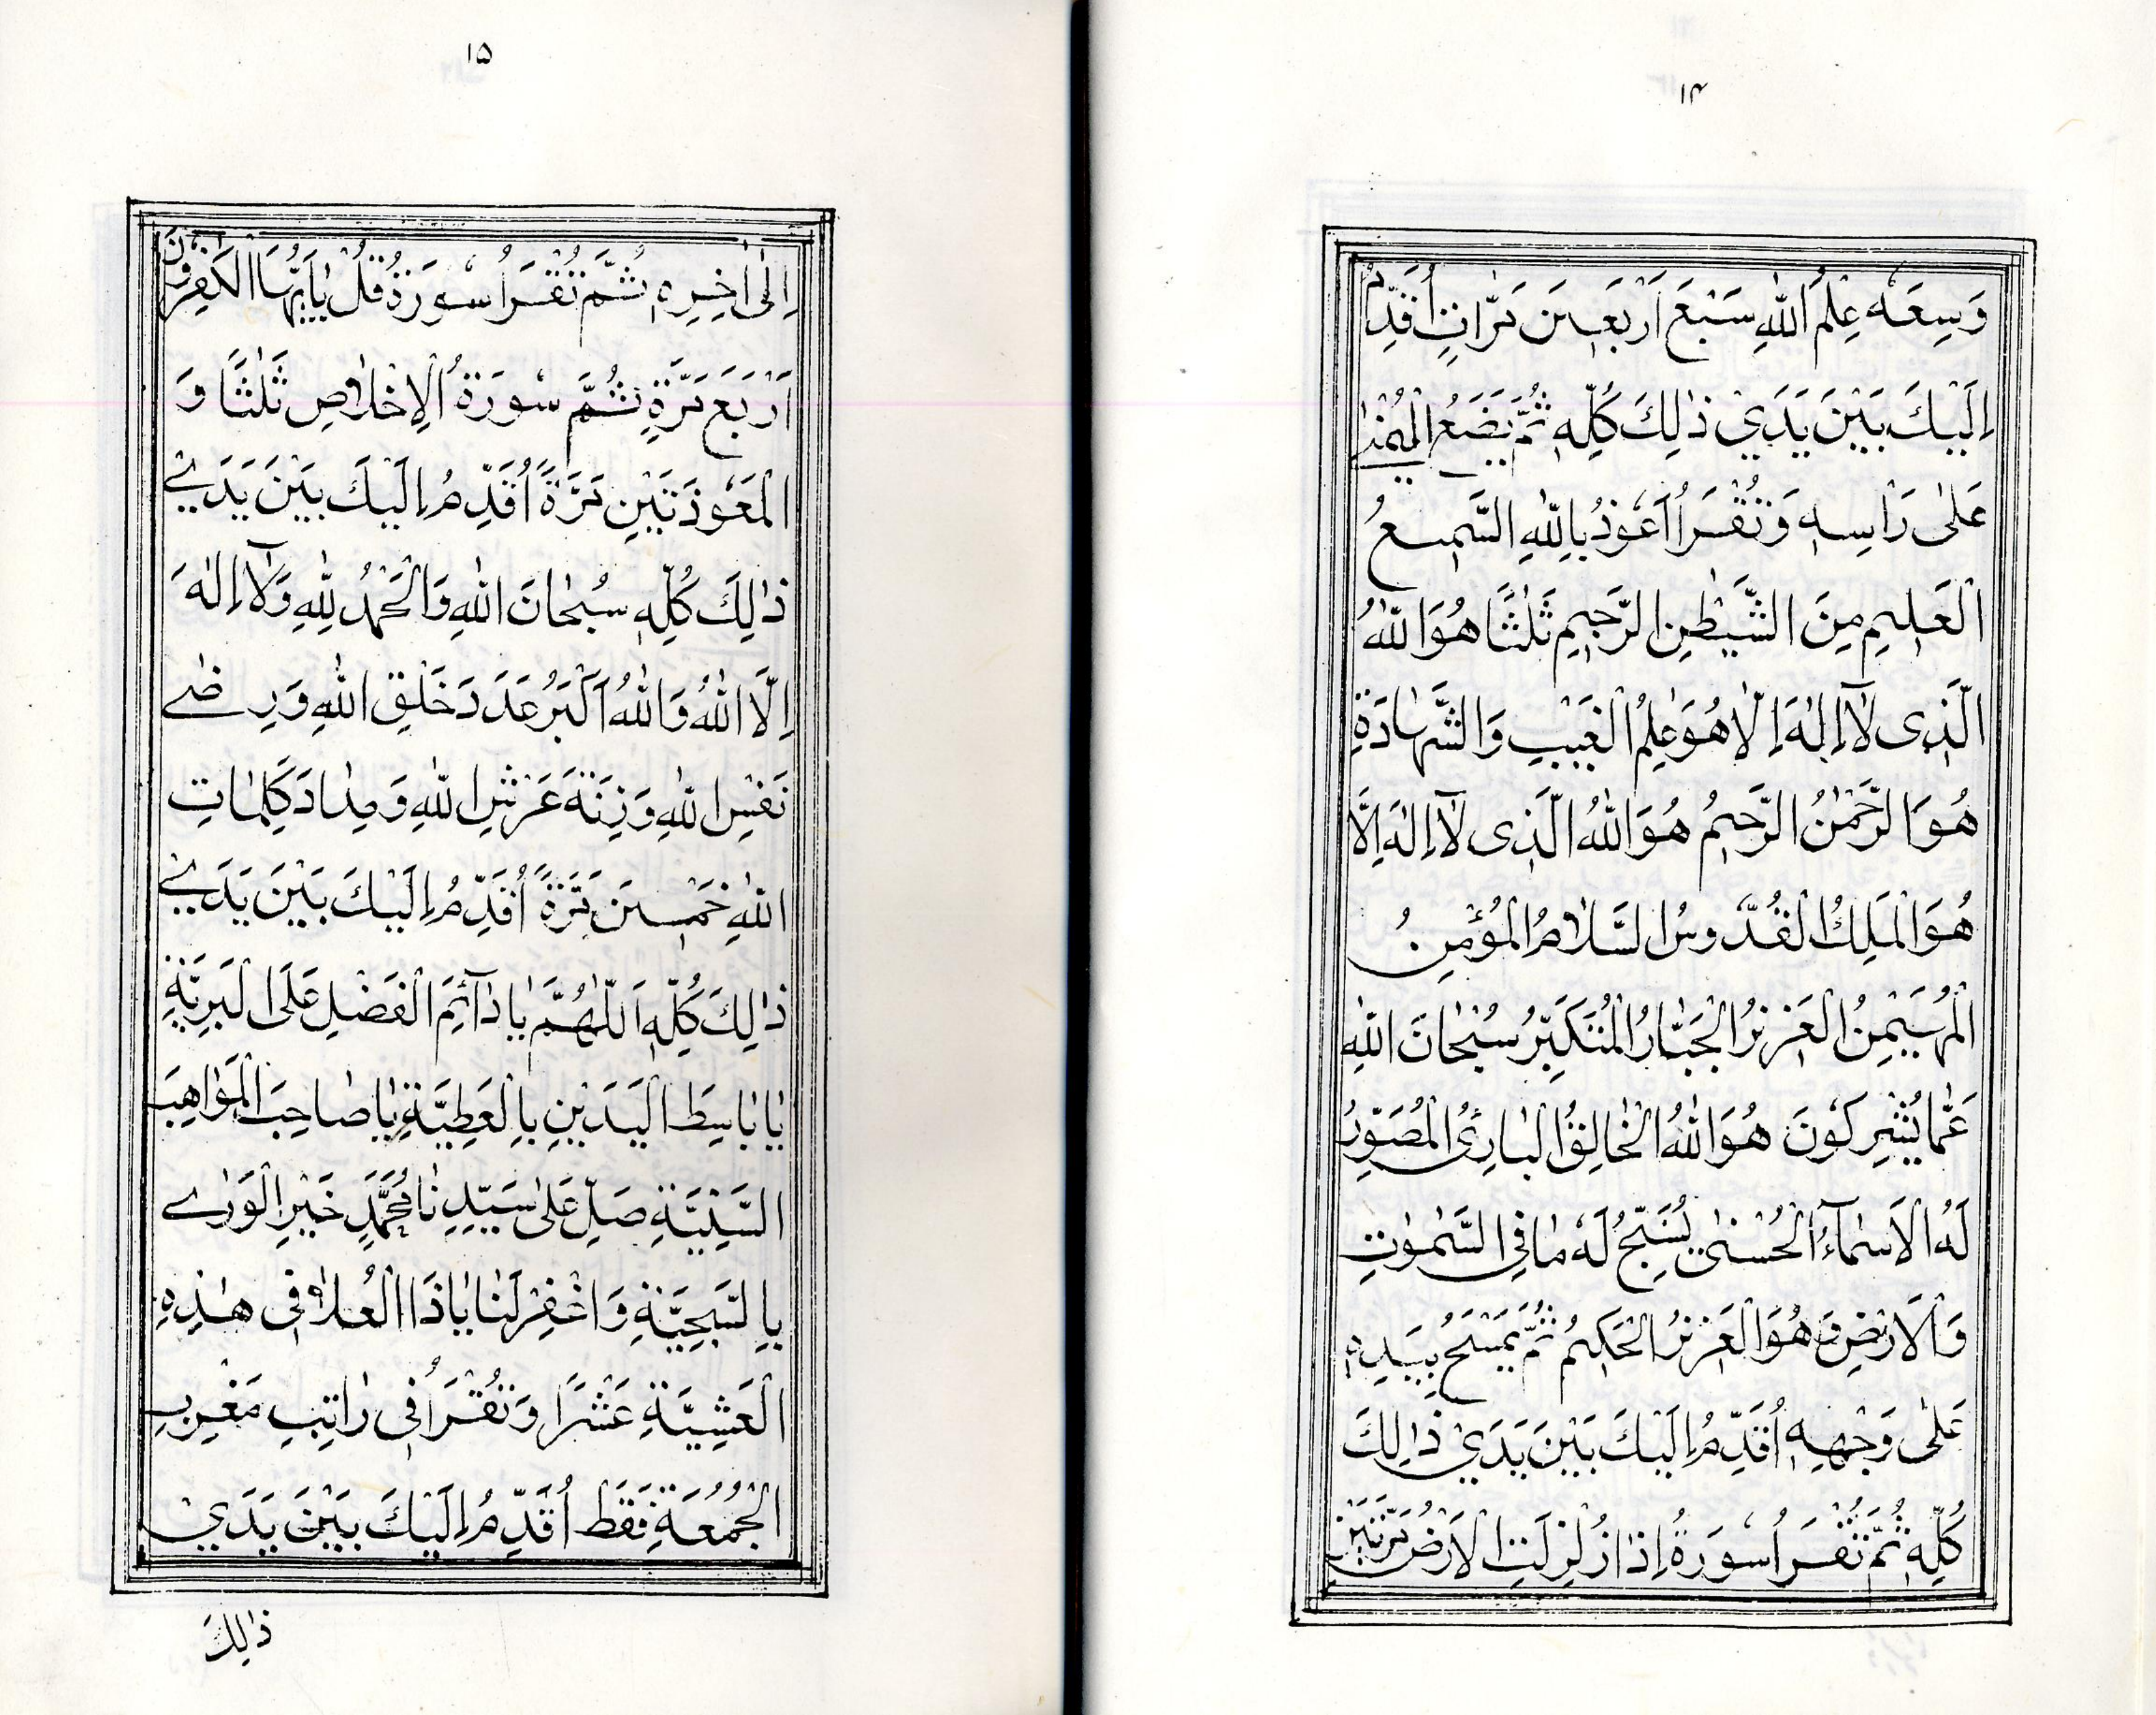 ۱۴
وَسِعَهٗ عِلْمُ اللّٰهِ سَبْعَ اَرْبَعِيْنَ مَرَّاتٍ اُقَدِّمُ
اِلَيْكَ بَيْنَ يَدَيْ ذٰلِكَ كُلِّهٖ ثُمَّ يَضَعُ الْيُمْنٰى
عَلٰى رَاْسِهٖ وَتُقْرَاُ اَعُوْذُ بِاللّٰهِ السَّمِيْعُ
الْعَلِيْمِ مِنَ الشَّيْطٰنِ الرَّجِيْمِ ثَلٰثًا هُوَ اللّٰهُ
الَّذِى لَآ اِلٰهَ اِلَّا هُوَ عٰلِمُ الْغَيْبِ وَالشَّهَادَةِ
هُوَ الرَّحْمٰنُ الرَّحِيْمُ هُوَ اللّٰهُ الَّذِى لَآ اِلٰهَ اِلَّا
هُوَ الْمَلِكُ الْقُدُّوسُ السَّلَامُ الْمُؤْمِنُ
الْمُهَيْمِنُ الْعَزِيْزُ الْجَبَّارُ الْمُتَكَبِّرُ سُبْحَانَ اللّٰهِ
عَمَّا يُشْرِكُوْنَ هُوَ اللّٰهُ الْخَالِقُ الْبَارِئُ الْمُصَوِّرُ
لَهُ الْاَسْمَآءُ الْحُسْنٰى يُسَبِّحُ لَهٗ مَا فِي السَّمٰوٰتِ
وَالْاَرْضِ وَهُوَ الْعَزِيْزُ الْحَكِيْمُ ثُمَّ يَمْسَحُ بِيَدِهٖ
عَلٰى وَجْهِهٖ اُقَدِّمُ اِلَيْكَ بَيْنَ يَدَيْ ذٰلِكَ
كُلِّهٖ ثُمَّ تُقْرَاُ سُوْرَةُ اِذَا زُلْزِلَتِ الْاَرْضُ مَرَّتَيْنِ
۱۵
اِلٰى اٰخِرِهٖ ثُمَّ تُقْرَاُ سُوْرَةُ قُلْ يٰاَيُّهَا الْكٰفِرُوْنَ
اَرْبَعَ مَرَّةٍ ثُمَّ سُوْرَةُ الْاِخْلَاصِ ثَلٰثًا وَ
الْمَعُوْذَتَيْنِ مَرَّةً اُقَدِّمُ اِلَيْكَ بَيْنَ يَدَيْ
ذٰلِكَ كُلِّهٖ سُبْحَانَ اللّٰهِ وَالْحَمْدُ لِلّٰهِ وَلَآ اِلٰهَ
اِلَّا اللّٰهُ وَاللّٰهُ اَكْبَرُ عَدَدَ خَلْقِ اللّٰهِ وَرِضٰى
نَفْسِ اللّٰهِ وَزِنَةَ عَرْشِ اللّٰهِ وَمِدَادَ كَلِمَاتِ
اللّٰهِ خَمْسِيْنَ مَرَّةً اُقَدِّمُ اِلَيْكَ بَيْنَ يَدَيْ
ذٰلِكَ كُلِّهٖ اَللّٰهُمَّ يَا دَآئِمَ الْفَضْلِ عَلَى الْبَرِيَّةِ
يَا بَاسِطَ الْيَدَيْنِ بِالْعَطِيَّةِ يَا صَاحِبَ الْمَوَاهِبِ
السَّنِيَّةِ صَلِّ عَلٰى سَيِّدِنَا مُحَمَّدٍ خَيْرِ الْوَرٰى
بِالسَّجِيَّةِ وَاغْفِرْ لَنَا يَا ذَا الْعُلَا فِى هٰذِهِ
الْعَشِيَّةِ عَشْرًا وَتُقْرَاُ فِى رَاتِبِ مَغْرِبِ
الْجُمُعَةِ فَقَطْ اُقَدِّمُ اِلَيْكَ بَيْنَ يَدَيْ
ذٰلِكَ